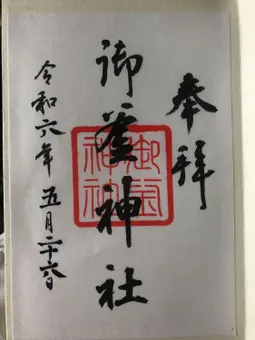 奉拝
御釜神社
御釜神社
令和六年五月二十六日